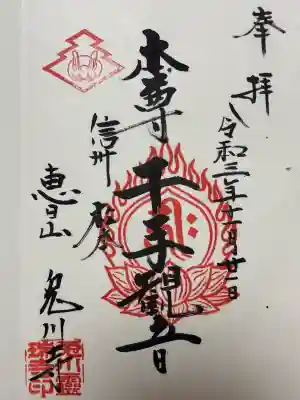 奉拝
令和三年十月廿一日
本尊
千手観音
信州
松本
恵日山
兎川寺